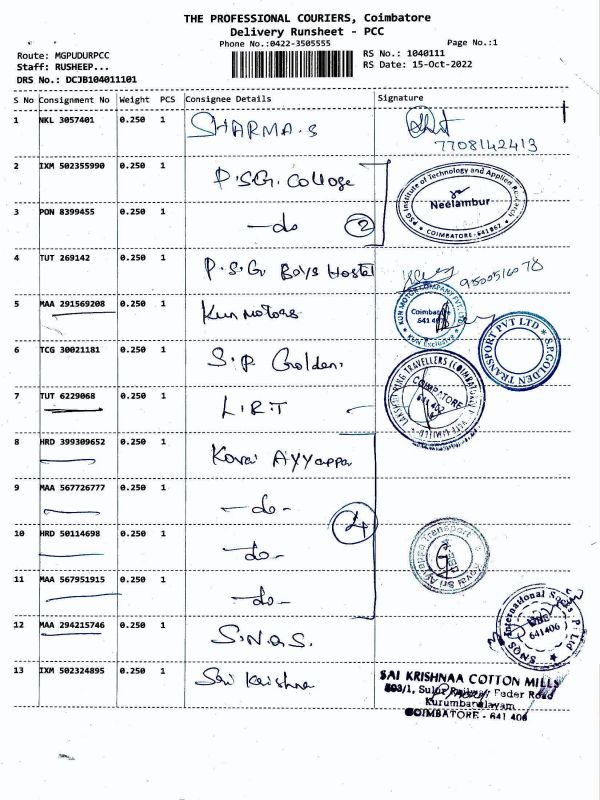 THE PROFESSIONAL COURIERS, Coimbatore
Delivery Runsheet - PCC
Phone No.:0422-3505555
Page No.:1
Route: MGPUDURPCC
RS No.: 1040111
Staff: RUSHEEP...
RS Date: 15-Oct-2022
DRS No.: DCJB104011101
S No Consignment No Weight PCS Consignee Details Signature
1 NKL 3057401 0.250 1 SHARMA.S
7708142413
2 IXM 502355990 0.250 1 P.SG. College
PSG Institute of Technology and Applied Research
Neelambur
COIMBATORE-641062
3 PON 8399455 0.250 1 -do 2
4 TUT 269142 0.250 1 P.S.G. Boys Hostel
5 MAA 291569208 0.250 1 Kun Motors
KUN MOTOR COMPANY PVT. LTD
Coimbatore
KUN Exclusive
S.P.GOLDEN TRANSPORT PVT LTD
6 TCG 30021181 0.250 1 S.P. Golden.
7 TUT 6229068 0.250 1 L.R.T
COIMBATORE
641 402
8 HRD 399309652 0.250 1 Kovai AYYappa
9 MAA 567726777 0.250 1 -do-
4
10 HRD 50114698 0.250 1 -do-
11 MAA 567951915 0.250 1 -do-
Kovai Sri Ayyappa Transport
12 MAA 294215746 0.250 1 S.N.Q.S.
SNQS International Socks P Ltd
641406
13 IXM 502324895 0.250 1 Sai Krishna
SAI KRISHNAA COTTON MILLS
803/1, Sulur Railway Feder Road
Kurumbapalayam
COIMBATORE - 641 406